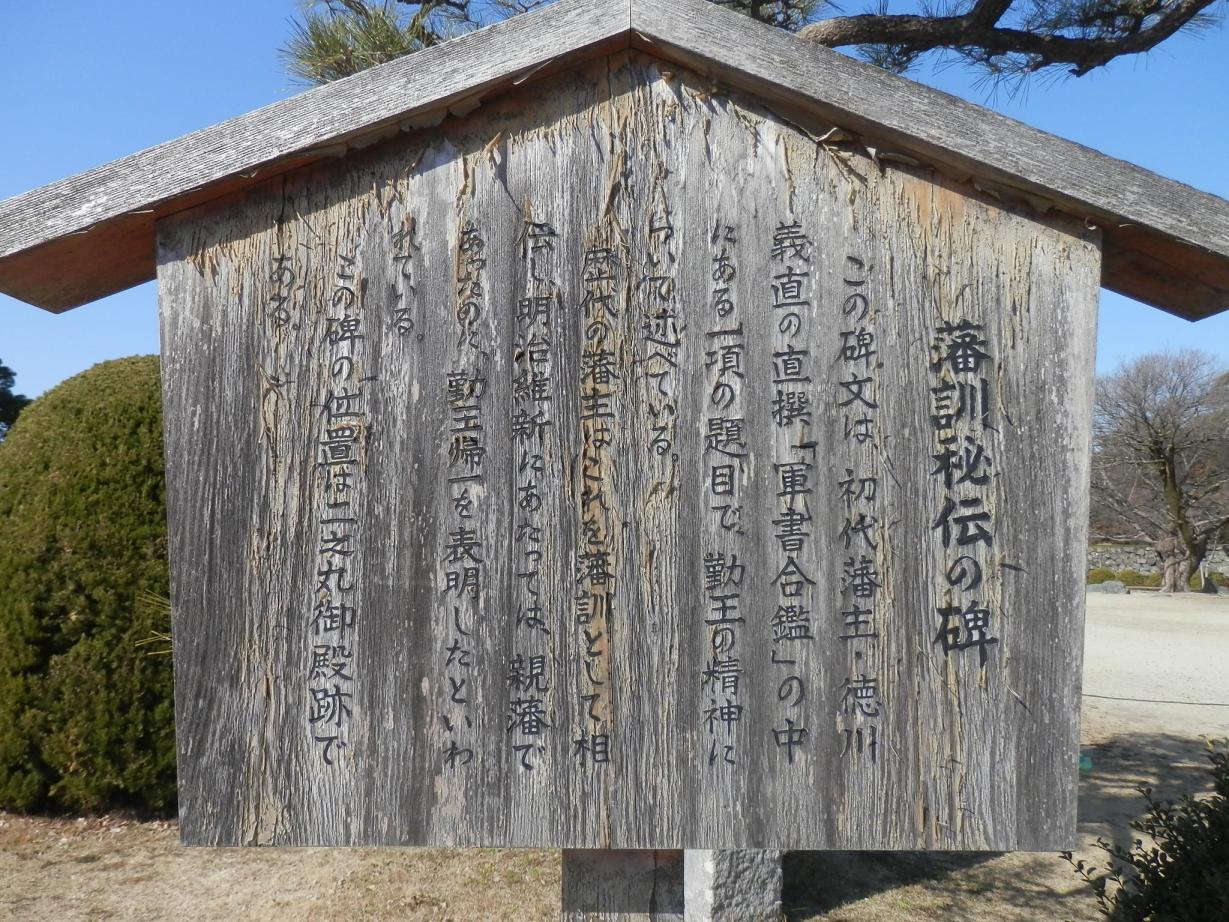 藩訓秘伝の碑
この碑文は、初代藩主・徳川
義直の直撰「軍書合鑑」の中
にある一項の題目で、勤王の精神に
ついて述べている。
歴代の藩主はこれを藩訓として相
伝し、明治維新にあたっては、親藩で
あったのに、勤王帰一を表明したといわ
れている。
この碑の位置は二之丸御殿跡で
ある。